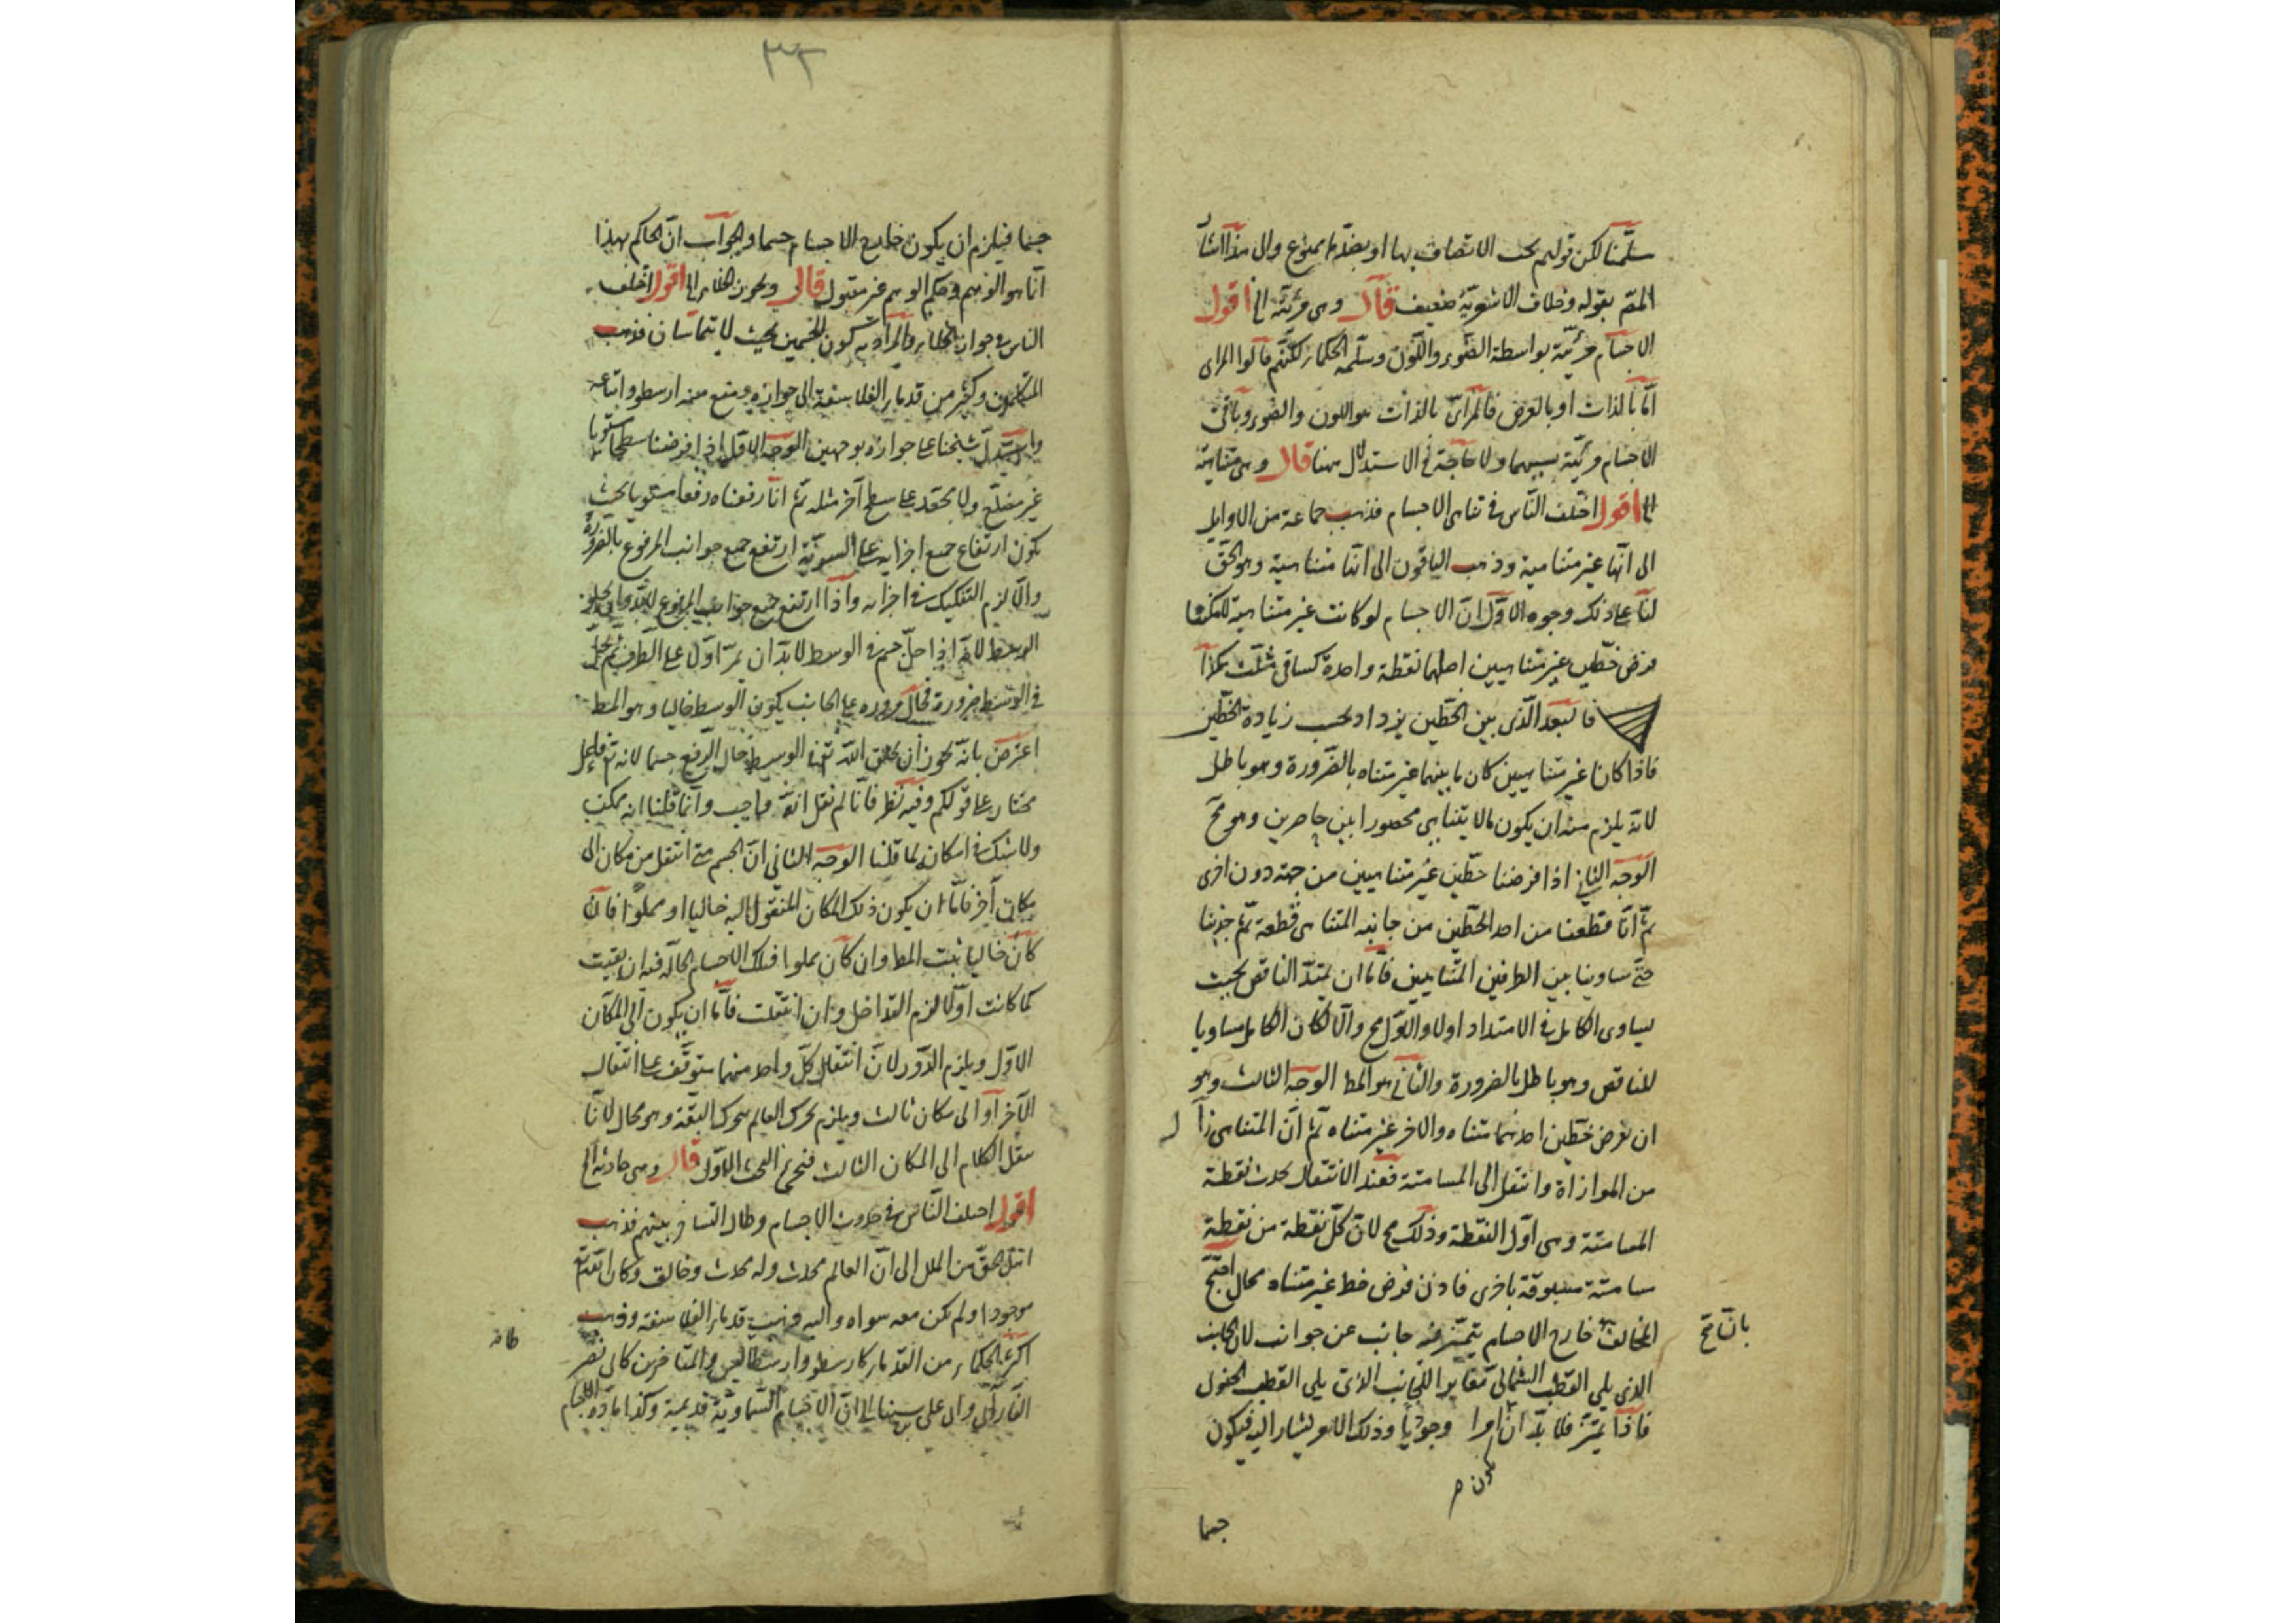 سلّمنا لكن قولهم يجب الاتصاف بها او بضدّها ممنوع والى هذا اشار
المص بقوله وخلاف الاشعرية ضعيف قال وهى مرئيّة الخ اقول
الاجسام مرئيّة بواسطة الضوء واللّون وسلّمه الحكماء لكنّهم قالوا المرئى
امّا بالذات او بالعرض فالمرئىّ بالذات هو اللون والضوء وباقى
الاجسام مرئيّة بسببهما ولا حاجة فى الاستدلال هنا قال وهى متناهية
الخ اقول اختلف النّاس فى تناهى الاجسام فذهب جماعة من الاوايل
الى انّها غير متناهية وذهب الباقون الى انّها متناهية وهو الحقّ
لنا على ذلك وجوه الاوّل انّ الاجسام لو كانت غير متناهية لامكننا
فرض خطّين غير متناهيين اصلهما نقطة واحدة كساقى مثلّث هكذا
فالبعد الّذى بين الخطّين يزداد بحسب زيادة الخطّين
فاذا كانا غير متناهيين كان ما بينهما غير متناه بالضّرورة وهو باطل
لانّه يلزم منه ان يكون ما لا يتناهى محصورا بين حاصرين وهو مح
الوجه الثانى اذا فرضنا خطّين غير متناهيين من جهة دون اخرى
ثمّ انّا قطعنا من احد الخطّين من جانبه المتناهى قطعة ثمّ جذبنا
حتّى ساوينا بين الطرفين المتناهيين فامّا ان يمتدّ الناقص بحيث
يساوى الكامل فى الامتداد اولا والاوّل مح والّا لكان الكامل مساويا
للناقص وهو باطل بالضرورة والثانى هو المط الوجه الثالث وهو
ان نفرض خطّين احدهما متناه والاخر غير متناه ثمّ انّ المتناهى زال
من الموازاة وانتقل الى المسامتة فعند الانتقال يحدث نقطة
المسامتة وهى اوّل النقطة وذلك مح لانّ كلّ نقطة من نقطة
مسامتة مسبوقة باخرى فاذن فرض خط غير متناه محال احتج
المخالف خارج الاجسام يتميّز منه جانب عن جوانب لانّ الجانب
بانّا نتح
الذى يلى القطب الشمالى مغايرا للجانب الذى يلى القطب الجنوبى
فاذا تميّز فلا بدّ انّ امرا وجوديّا وذلك الامر يشار اليه فيكون
يكون ص
جسما
٣٢
جسما فيلزم ان يكون خارج الاجسام جسما والجواب انّ الحاكم بهذا
انّما هو الوهم وحكم الوهم غير مقبول قال ويجوز الخلاء الخ اقول اختلف
الناس فى جواز الخلاء والمراد به كون الجسمين بحيث لا يتماسّان فذهب
المتكلّمون وكثير من قدماء الفلاسفة الى جوازه ومنع منه ارسطو واتباعه
واستدلّ شيخنا على جوازه بوجهين الوجه الاوّل اذا فرضنا سطحا مستويا
غير مضلّع ولا محدب على سطح آخر مثله ثمّ انّا رفعناه رفعا مستويا بحيث
يكون ارتفاع جميع اجزايه على السويّة ارتفع جميع جوانب المرفوع بالضرورة
والّا لزم التفكيك فى اجزائه واذا ارتفع جميع جوانب المرفوع
الوسط لانّه اذا حلّ جسم فى الوسط لابدّ ان يمرّ اوّلا على الطرف ثمّ يحلّ
فى الوسط ضرورة فحال مروره على الجانب يكون الوسط خاليا وهو المط
اعترض بانّه يجوز ان يخلق اللّه تعالى فى الوسط حال الرفع جسما لانه تعالى فاعل
مختار على قولكم وفيه نظر فانّا لم نقل انّه واجب وانّما قلنا انه ممكن
ولا شك فى امكان ما قلنا الوجه الثانى انّ الجسم متى انتقل من مكان الى
مكان آخر فامّا ان يكون ذلك المكان المنتقول اليه خاليا او مملوّا فان
كان خاليا ثبت المط وان كان مملوا فتلك الاجسام الحالّة فيه ان بقيت
كما كانت اوّلا لزم التداخل وان انتقلت فامّا ان يكون الى المكان
الاوّل ويلزم الدّور لانّ انتقال كلّ واحد منهما يتوقّف على انتقال
الآخر او الى مكان ثالث ويلزم تحرك العالم بتحرك البقّة وهو محال لانّا
ننقل الكلام الى المكان الثالث البحث الاوّل قال وهى حادثة الخ
اقول اختلف النّاس فى حدوث الاجسام وطال التشاجر بينهم فذهب
اهل الحقّ من الملل الى انّ العالم محدث وله محدث وخالق وكان اللّه تعالى
موجودا ولم يكن معه سواه واليه ذهب قدماء الفلاسفة وذهب
اكثر الحكماء من القدماء كارسطو وارسطاليس والمتاخرين كابى نصر
الفارابى وابى على بن سينا الى انّ الاجسام السّماويّة قديمة وكذا مادّة الاجسام